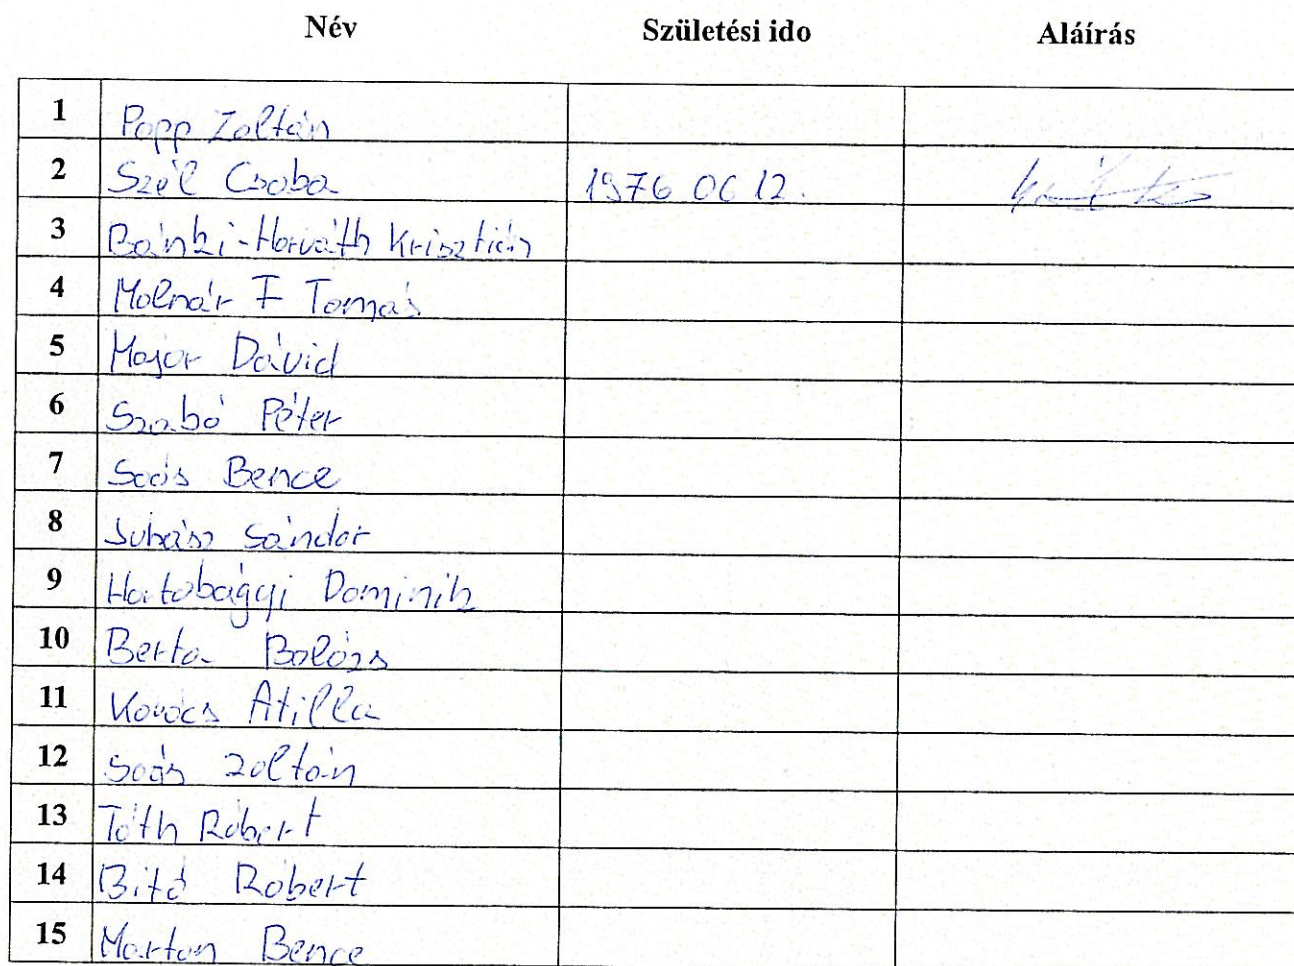 Név Születési ido Aláírás
1 Papp Zoltán
2 Szél Csaba 1976 06 12.
3 Bánki-Horváth Krisztián
4 Molnár F Tamás
5 Major Dávid
6 Szabó Péter
7 Soós Bence
8 Juhász Sándor
9 Hortobágyi Dominik
10 Berta Balázs
11 Kovács Atilla
12 Soós Zoltán
13 Tóth Róbert
14 Bitó Róbert
15 Marton Bence